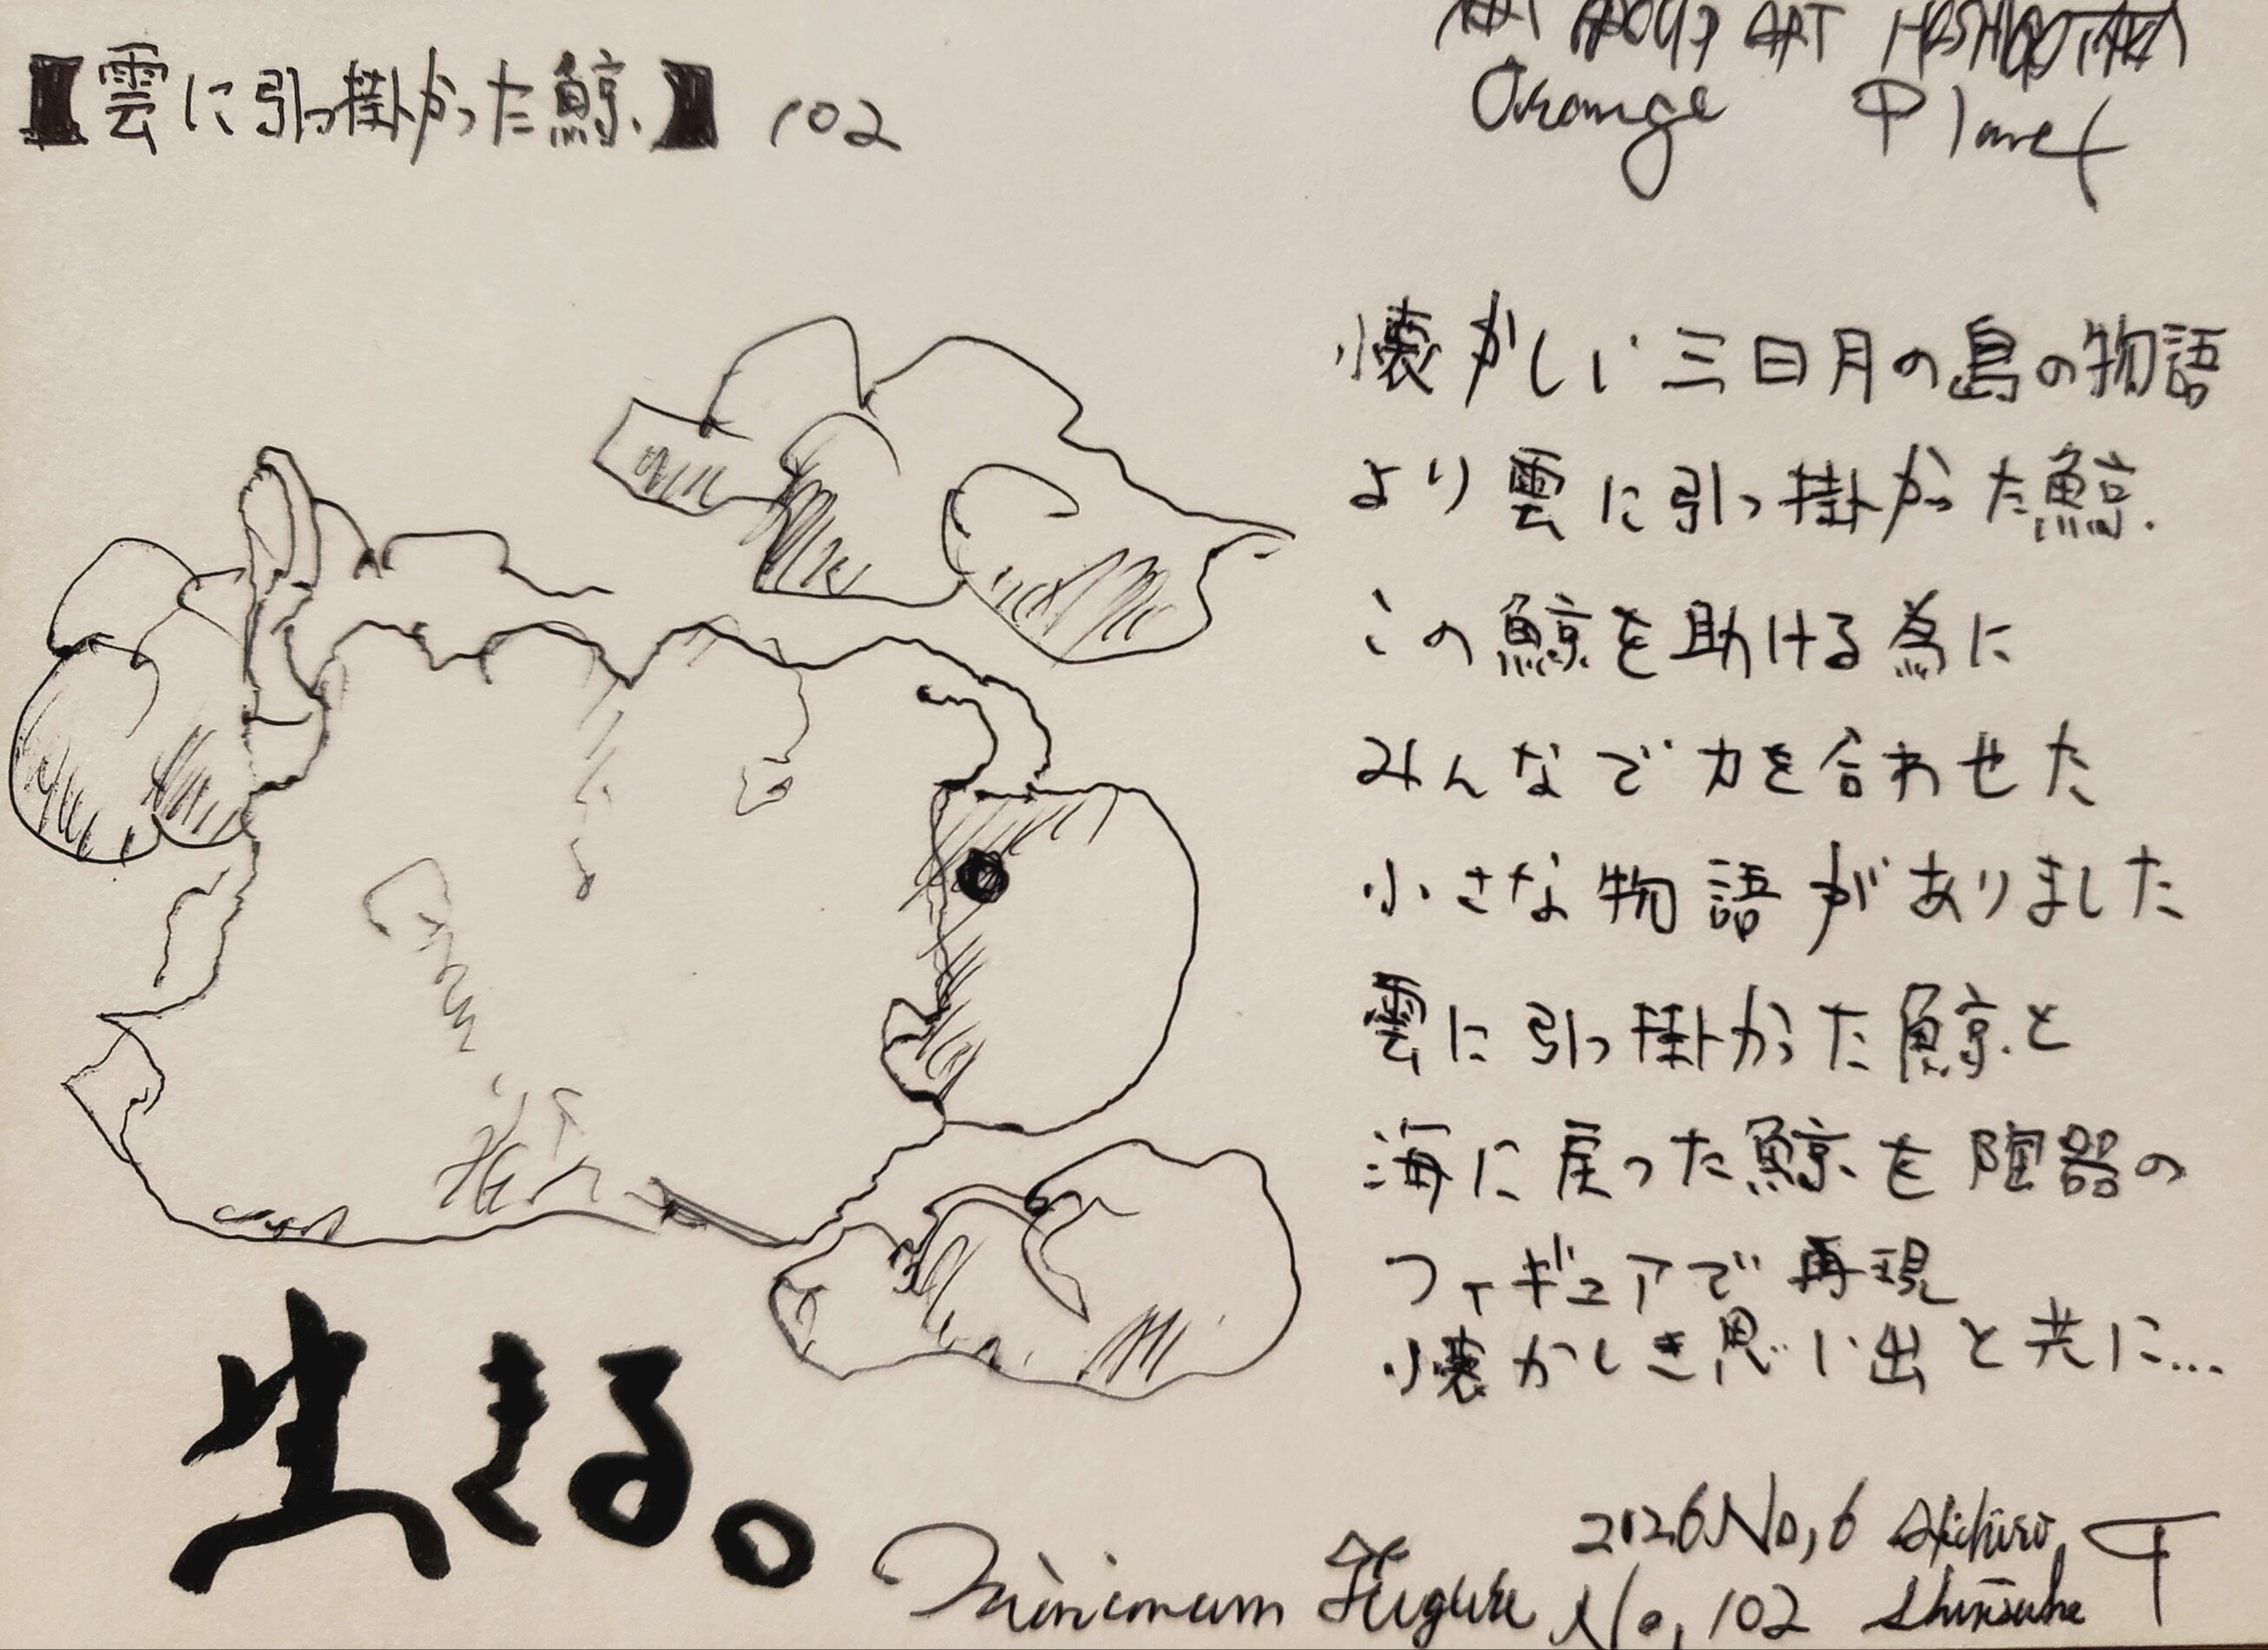 【雲に引っ掛かった鯨】 102
ART
Orange Planet
懐かしい三日月の島の物語
より雲に引っ掛かった鯨
この鯨を助ける為に
みんなで力を合わせた
小さな物語がありました
雲に引っ掛かった鯨と
海に戻った鯨を陶器の
フィギュアで再現
懐かしき思い出と共に...
生きる。
2026 No, 6 Akihiro
Minimum Figure No, 102 Shinsuke T